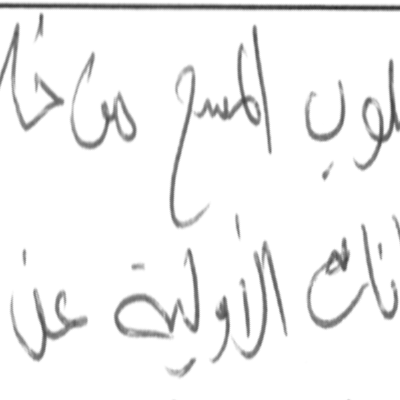 لوب المسح من خلا
نات الأولية عن